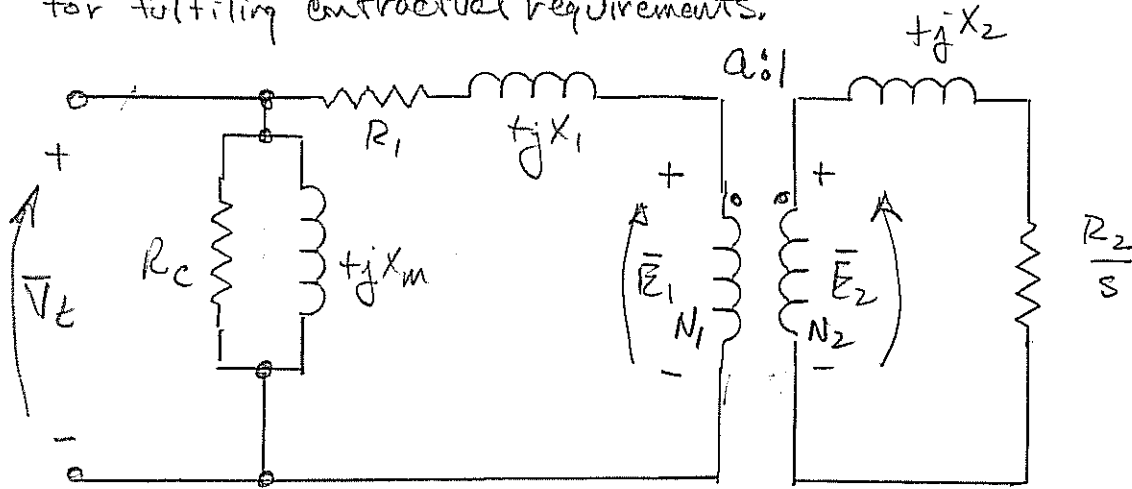 for fulfiling contractual requirements.
+jX₂
a:1
R₁
+jX₁
+
+
+
R_c
+jX_m
V̄_t
Ē₁
Ē₂
R₂/s
N₁
N₂
-
-
-